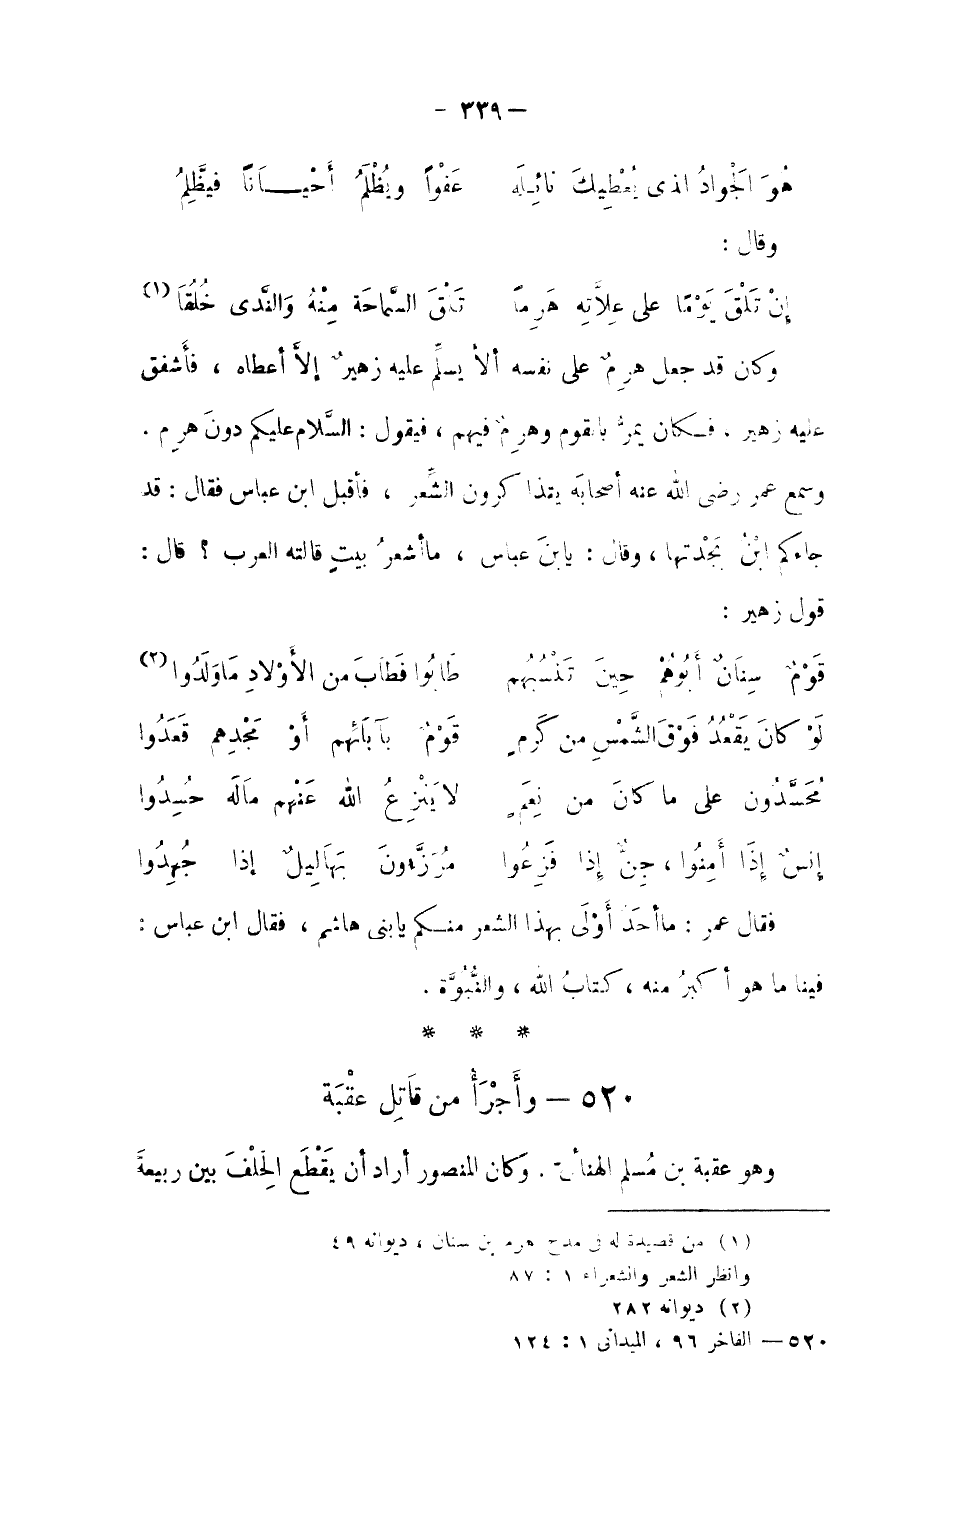 – ٣٣٩ –
هُوَ الجْوادُ الذى يُعْطِيكَ نائِلَه عَفْواً ويُظْلَمُ أَحْيــاناً فيَظَّلِمُ
وقال :
إِنْ تَلْقَ يَوْمًا على عِلاَّتِه هَرِمًا تَلْقَ السَّماحَة مِنْهُ وَالنَّدى خُلُقَا (١)
وكان قد جعل هرِمٌ على نفسه ألاَّ يسلِّم عليه زهيرٌ إلاَّ أعطاه ، فأَشفق
عليه زهير . فــكان يمرُّ بالقوم وهرِمٌ فيهم ، فيقول : السَّلام عليكم دونَ هرِم .
وسمع عمر رضى الله عنه أصحابَه يتذاكرون الشِّعر ، فأقبل ابن عباس فقال : قد
جاءكم ابْنُ بَجْدتها ، وقال : يابنَ عباس ، ماأشعرُ بيتٍ قالته العرب ؟ قال :
قول زهير :
قَوْمٌ سِنَانٌ أَبُوهُمْ حِينَ تَنْسُبُهُم طَابُوا فَطَابَ من الأَوْلادِ مَاوَلَدُوا (٢)
لَوْ كانَ يَقْعُدُ فَوْقَ الشَّمْسِ من كَرَمٍ قَوْمٌ بآبَائِهم أَوْ مَجْدِهم قَعَدُوا
مُحَسَّدُون على ما كانَ من نِعَمٍ لايَنْزِعُ الله عَنْهم مالَه حُسِدُوا
إنسٌ إِذَا أَمِنُوا ، جِنٌّ إِذا فَزِعُوا مُرَزَّءونَ بَهاَلِيلٌ إذا جُهِدُوا
فقال عمر : ماأحَدٌ أَوْلَى بهذا الشعر منــكم يابنى هاشم ، فقال ابن عباس :
فينا ما هو أكبرُ منه ، كتابُ الله ، والنُّبُوَّة .
* * *
٥٢٠ – وأَجْرَأُ من قاَتِل عقْبَة
وهو عقبة بن مُسلم الهنائى . وَكان المنصور أراد أن يَقْطَع الحِلْفَ بين ربيعةَ
(١) من قصيدة له فى مدح هرم بن سنان ، ديوانه ٤٩
وانظر الشعر والشعراء ١ : ٨٧
(٢) ديوانه ٢٨٢
٥٢٠ – الفاخر ٩٦ ، الميدانى ١ : ١٢٤